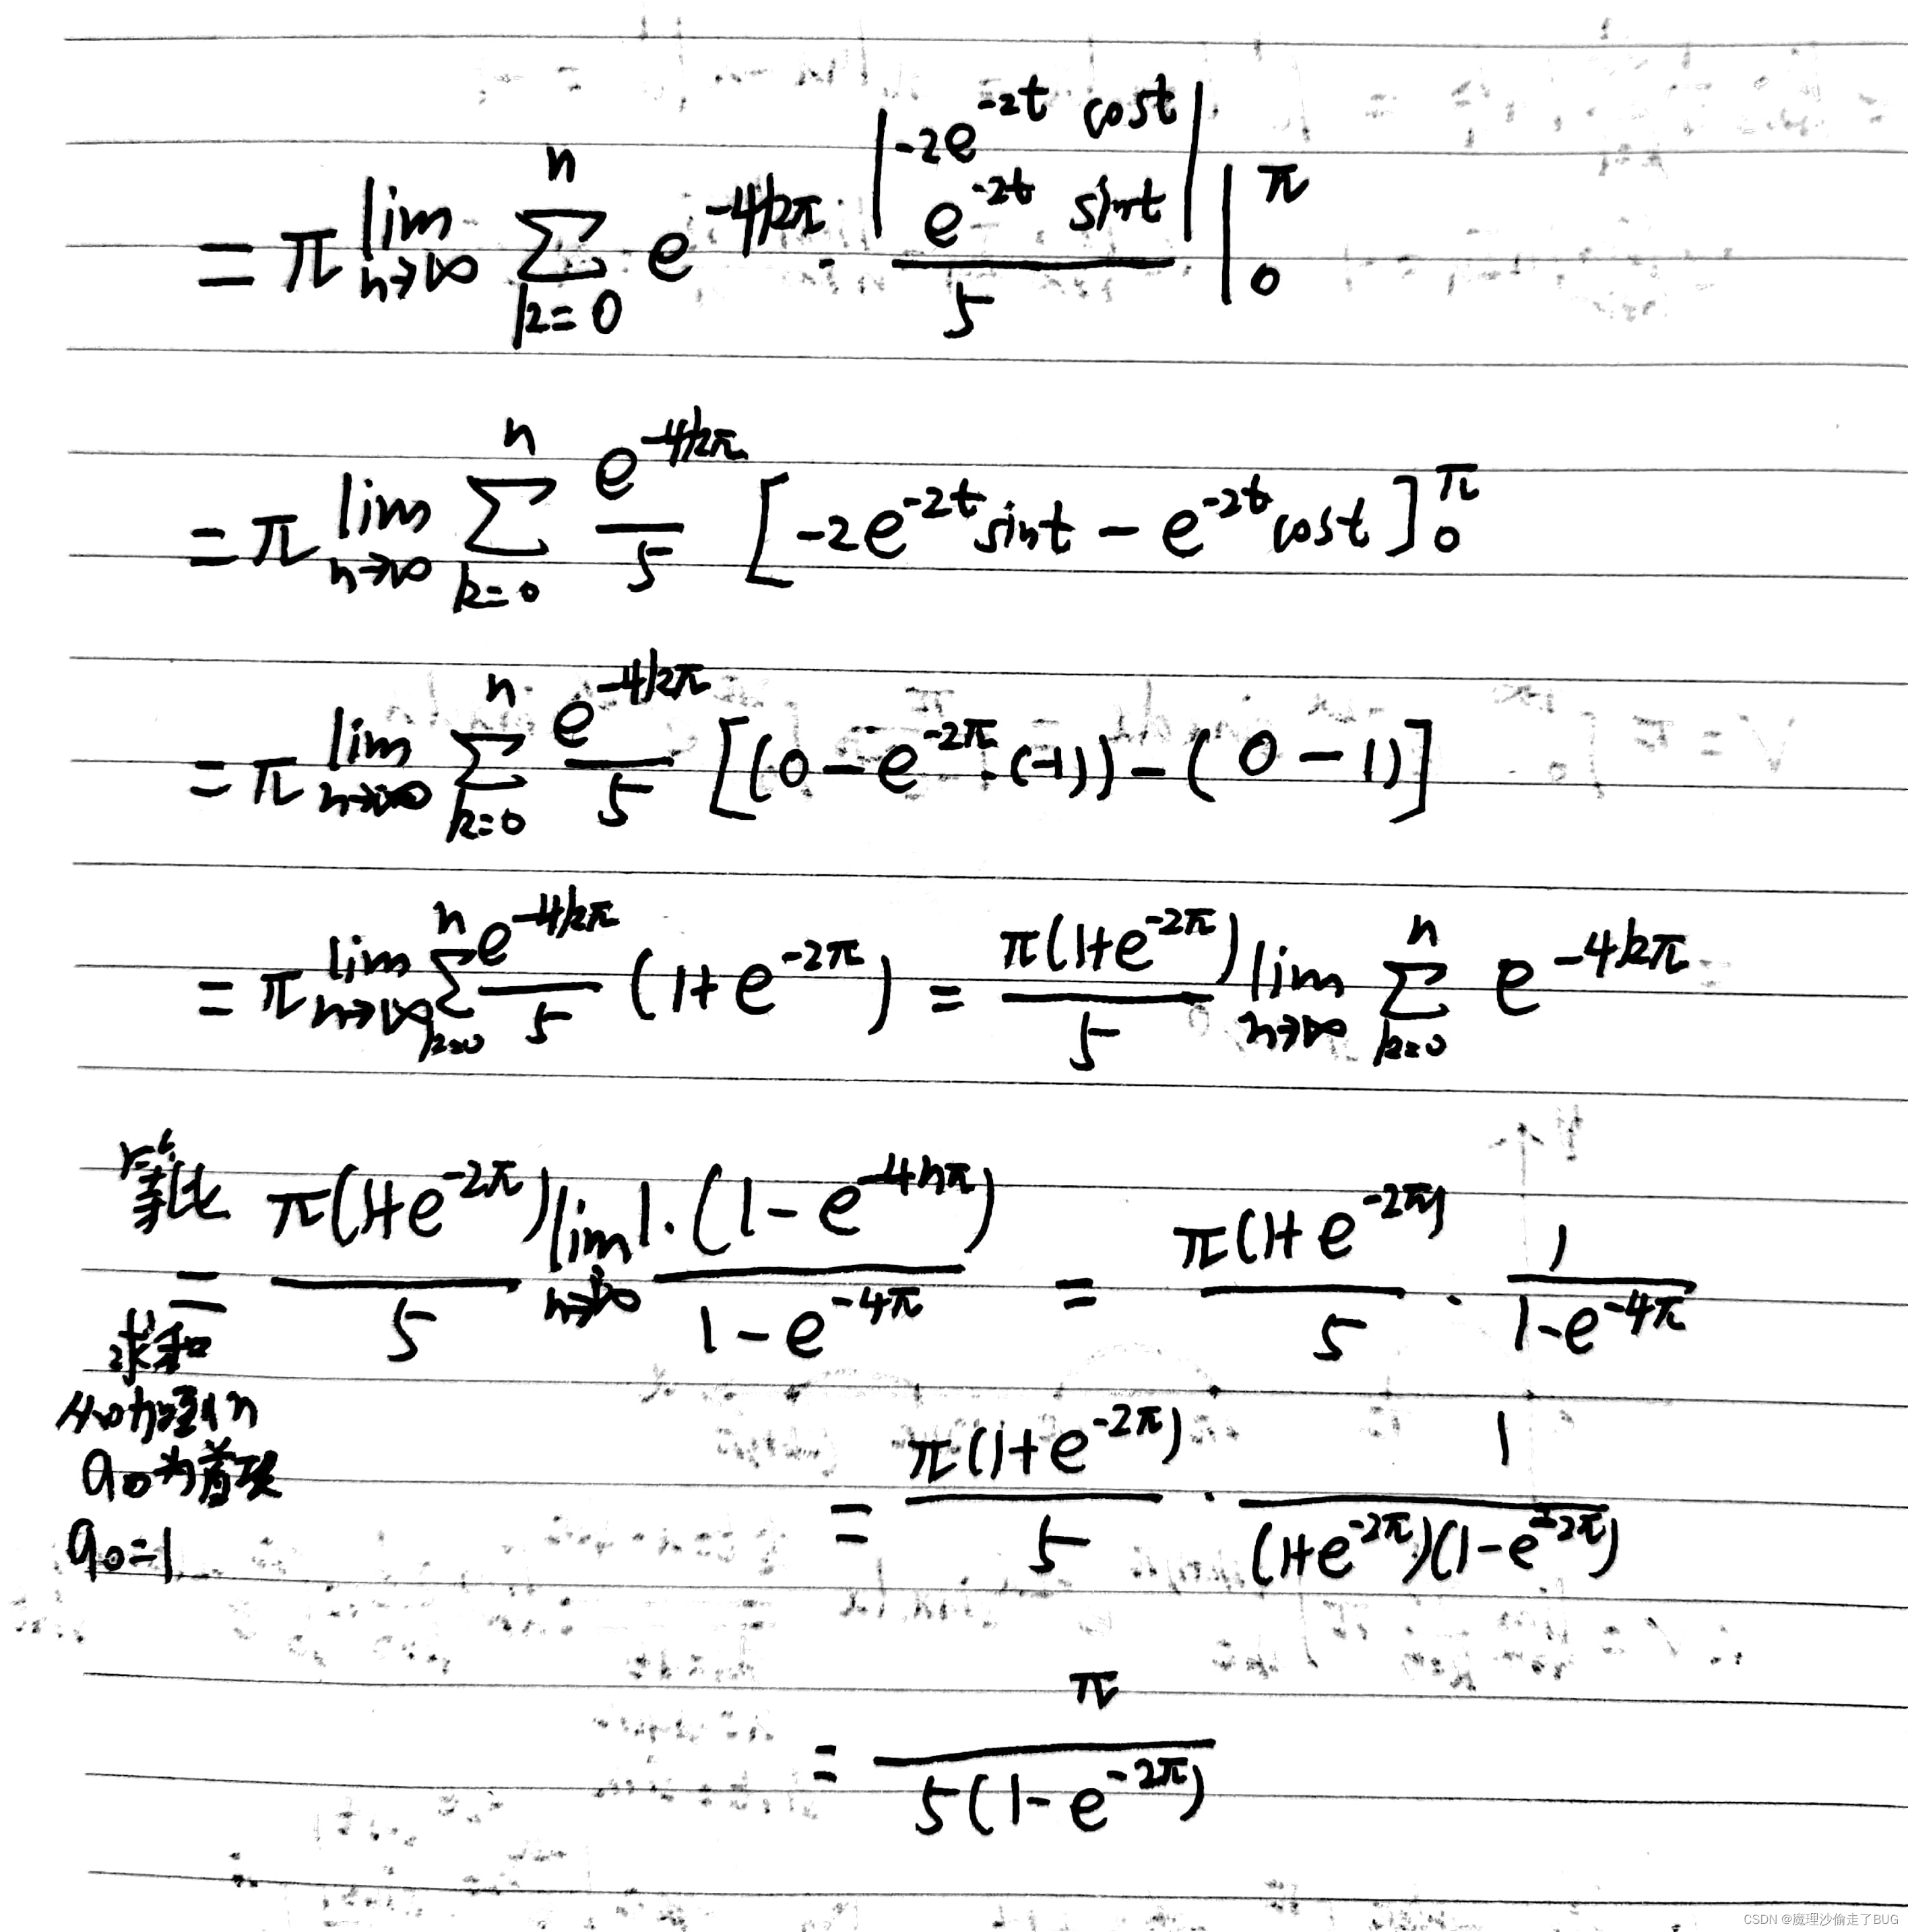 = π lim_{n→∞} Σ_{k=0}^{n} e^{-4kπ} · \frac{\begin{vmatrix} -2e^{-2t} & cost \\ e^{-2t} & sint \end{vmatrix}}{5} |_0^π
= π lim_{n→∞} Σ_{k=0}^{n} \frac{e^{-4kπ}}{5} [-2e^{-2t}sint - e^{-2t}cost]_0^π
= π lim_{n→∞} Σ_{k=0}^{n} \frac{e^{-4kπ}}{5} [(0 - e^{-2π}·(-1)) - (0 - 1)]
= π lim_{n→∞} Σ_{k=0}^{n} \frac{e^{-4kπ}}{5} (1+e^{-2π}) = \frac{π(1+e^{-2π})}{5} lim_{n→∞} Σ_{k=0}^{n} e^{-4kπ}
等比
= \frac{π(1+e^{-2π})}{5} lim_{n→∞} \frac{1·(1-e^{-4nπ})}{1-e^{-4π}} = \frac{π(1+e^{-2π})}{5} · \frac{1}{1-e^{-4π}}
求和
从0加到n
a_0为首项
a_0=1
= \frac{π(1+e^{-2π})}{5} · \frac{1}{(1+e^{-2π})(1-e^{-2π})}
= \frac{π}{5(1-e^{-2π})}
CSDN @魔理沙偷走了BUG